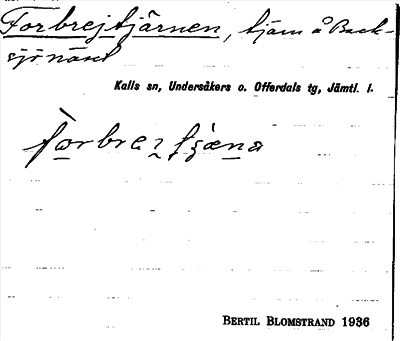 Forbrejtjärnen, tjärn å Back-
sjönäset
Kalls sn, Undersåkers o. Offerdals tg, Jämtl. l.
BERTIL BLOMSTRAND 1936